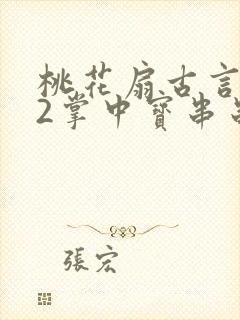 桃花扇古言
2掌中寶串
張宏